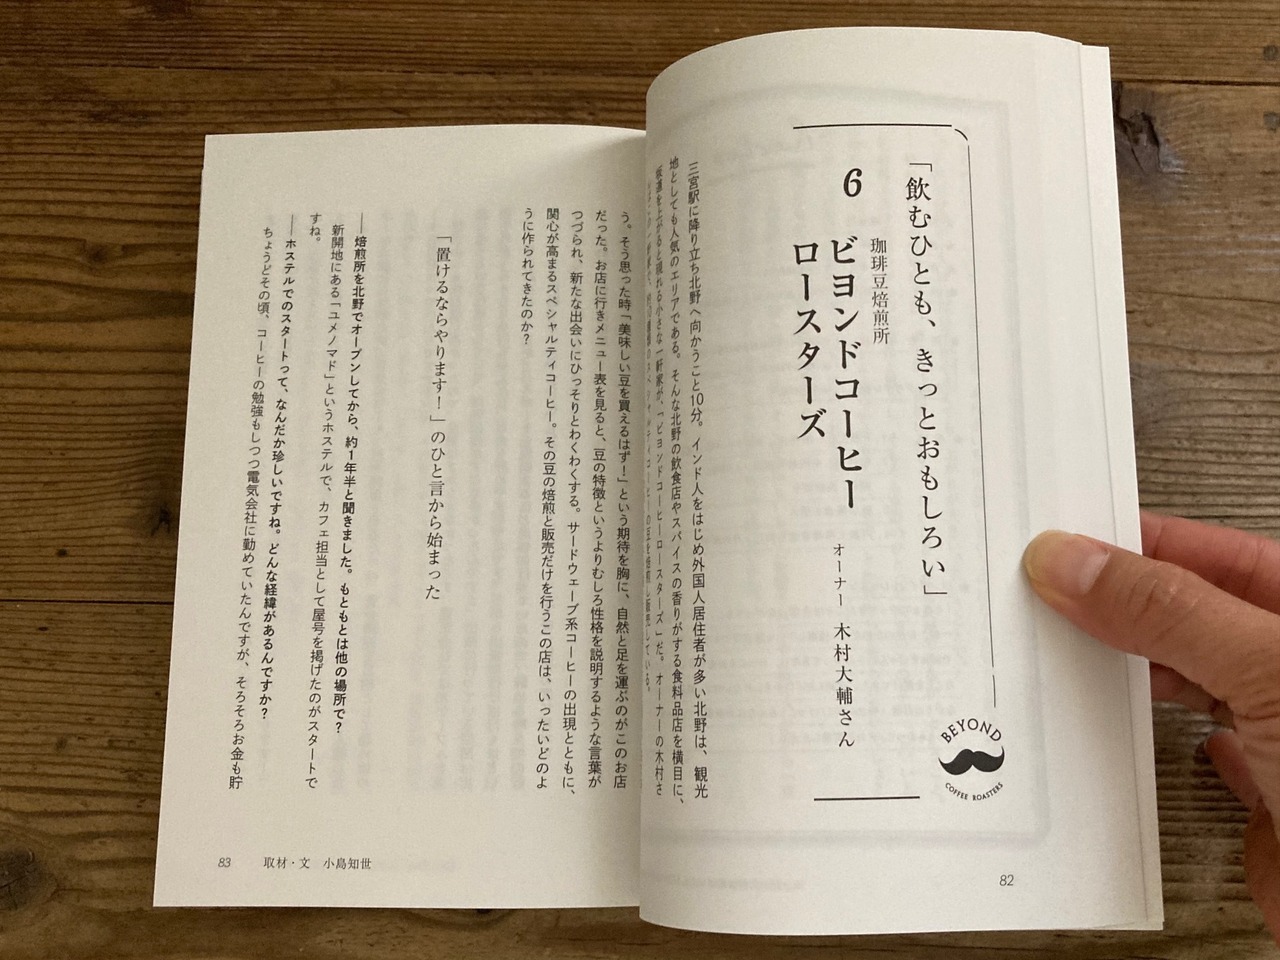 「飲むひとも、きっとおもしろい」
6
珈琲豆焙煎所
ビヨンドコーヒー
ロースターズ
オーナー 木村大輔さん
BEYOND
COFFEE ROASTERS
三宮駅に降り立ち北野へ向かうこと10分。インド人をはじめ外国人居住者が多い北野は、観光
地としても人気のエリアである。そんな北野の飲食店やスパイスの香りがする食料品店を横目に、
坂道を上がると現れる小さな一軒家が、「ビヨンドコーヒーロースターズ」だ。オーナーの木村さ
スペシャルティコーヒーの豆を焙煎し販売している。
82
う。そう思った時「美味しい豆を買えるはず！」という期待を胸に、自然と足を運ぶのがこのお店
だった。お店に行きメニュー表を見ると、豆の特徴というよりむしろ性格を説明するような言葉が
つづられ、新たな出会いにひっそりとわくわくする。サードウェーブ系コーヒーの出現とともに、
関心が高まるスペシャルティコーヒー。その豆の焙煎と販売だけを行うこの店は、いったいどのよ
うに作られてきたのか？
「置けるならやります！」のひと言から始まった
──焙煎所を北野でオープンしてから、約1年半と聞きました。もともとは他の場所で？
新開地にある「ユメノマド」というホステルで、カフェ担当として屋号を掲げたのがスタートで
すね。
──ホステルでのスタートって、なんだか珍しいですね。どんな経緯があるんですか？
ちょうどその頃、コーヒーの勉強もしつつ電気会社に勤めていたんですが、そろそろお金も貯
83
取材・文 小島知世